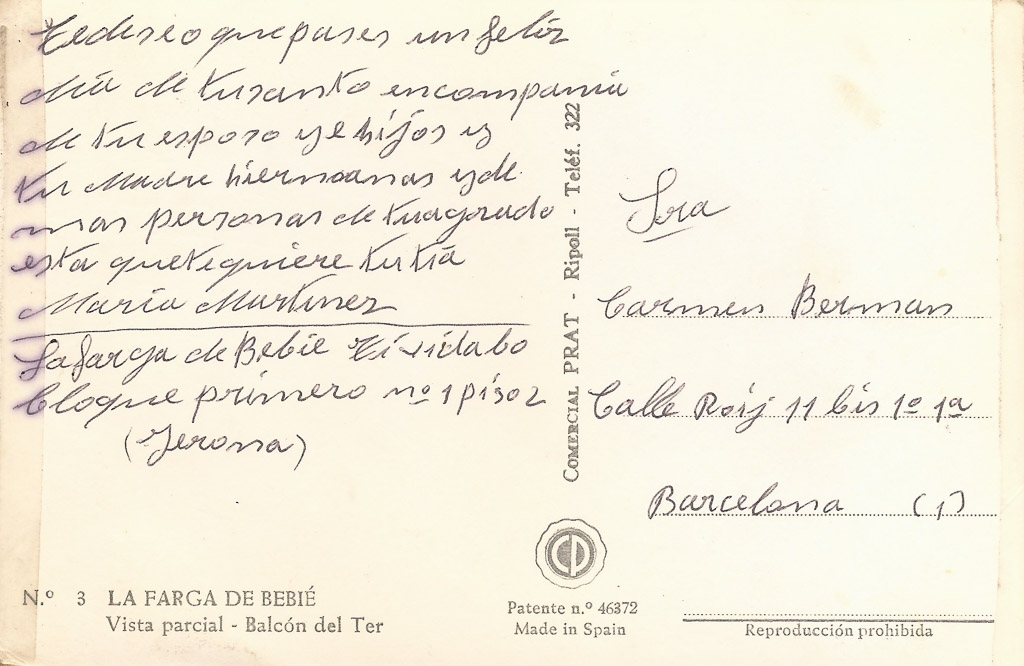 Tedeseo que pases un feliz
día de tu santo encompania
de tu esposo y e hijos y
tu Madre hiermanas y de
mas personas de tu agrado
esta que te quiere tu tia
Maria Martinez
La farga de Bebie
bloque primero nº 1 piso 2
(Jerona)
Sra
Carmen Berman
Calle Roig 11 bis 1º 1ª
Barcelona (1)
COMERCIAL PRAT - Ripoll - Teléf. 322
N.º 3 LA FARGA DE BEBIÉ
Vista parcial - Balcón del Ter
CP
Patente n.º 46372
Made in Spain
Reproducción prohibida